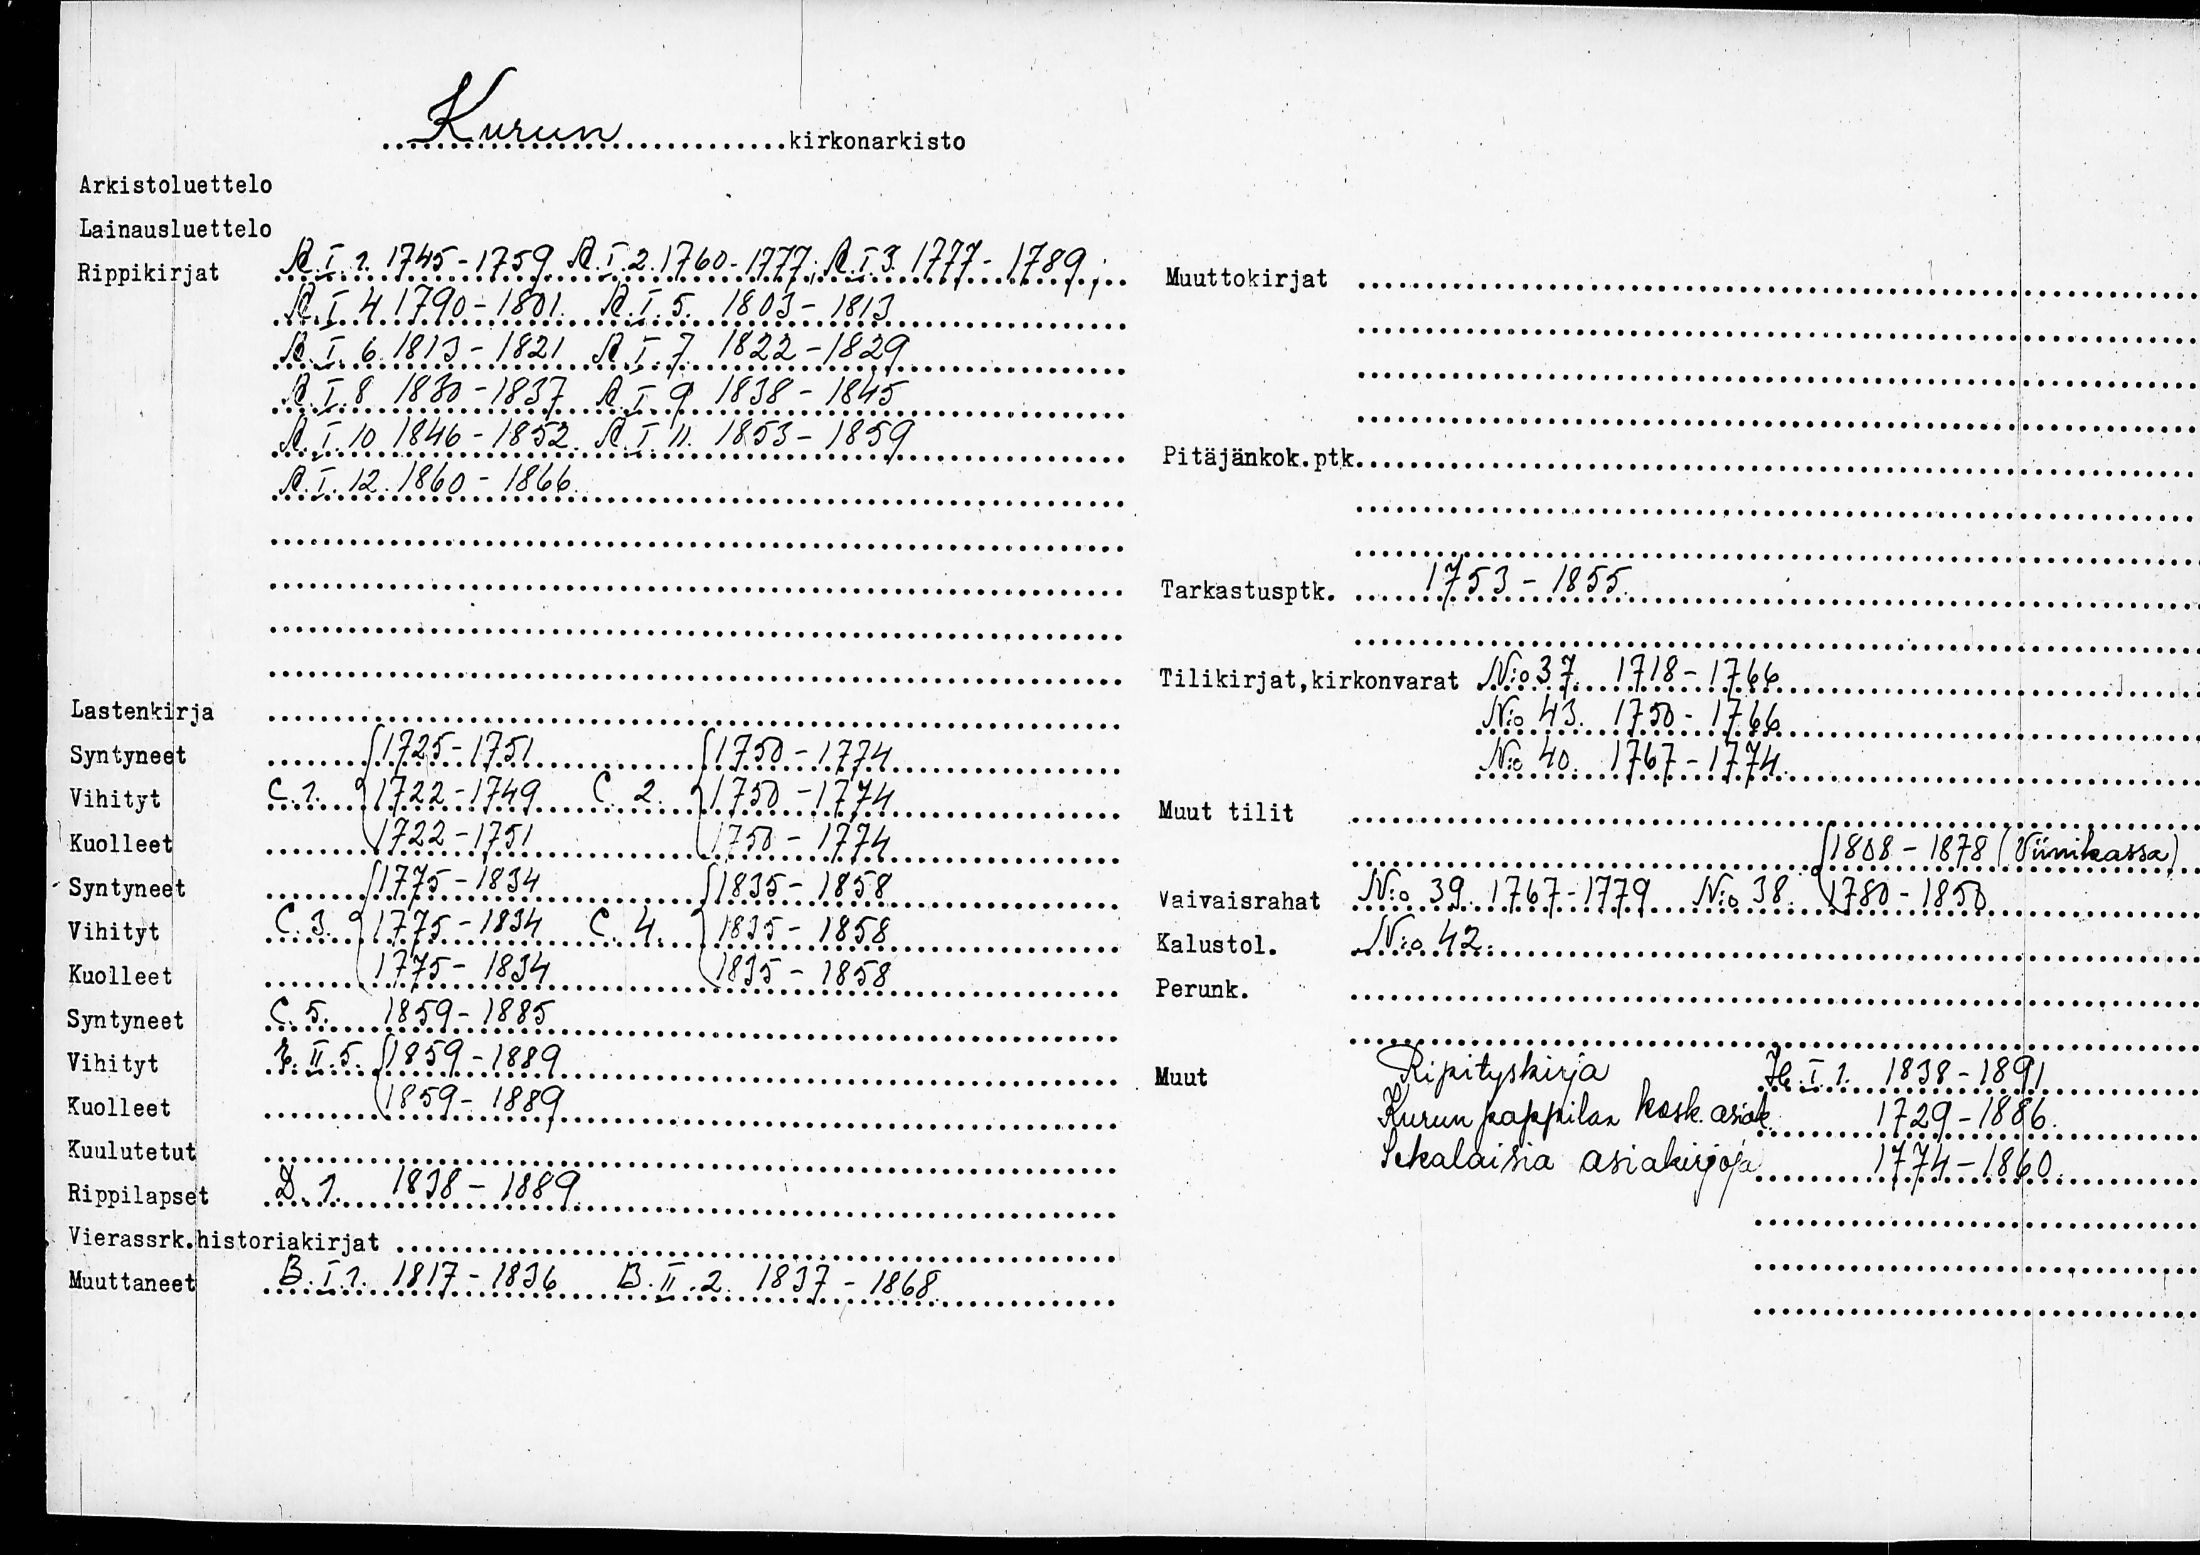 Kurun kirkonarkisto
Arkistoluettelo
Lainausluettelo
Rippikirjat A.I.1. 1745-1759. A.I.2. 1760-1777; A.I.3. 1777-1789;
A.I.4 1790-1801. A.I.5. 1803-1813
A.I.6. 1813-1821 A.I.7. 1822-1829
A.I.8 1830-1837 A.I.9 1838-1845
A.I.10 1846-1852. A.I.11. 1853-1859
A.I.12. 1860-1866.
Lastenkirja
Syntyneet 1725-1751 1750-1774
Vihityt C.1. 1722-1749 C.2. 1750-1774
Kuolleet 1722-1751 1750-1774
Syntyneet 1775-1834 1835-1858
Vihityt C.3. 1775-1834 C.4. 1835-1858
Kuolleet 1775-1834 1835-1858
Syntyneet C.5. 1859-1885
Vihityt II.5. 1859-1889
Kuolleet 1859-1889
Kuulutetut
Rippilapset D.1. 1838-1889
Vierassrk.historiakirjat
Muuttaneet B.I.1. 1817-1836 B.II.2. 1837-1868
Muuttokirjat
Pitäjänkok.ptk.
Tarkastusptk. 1753-1855.
Tilikirjat,kirkonvarat N:o 37. 1718-1766
N:o 43. 1750-1766
N:o 40. 1767-1774
Muut tilit
1808-1878 (Viinikassa)
Vaivaisrahat N:o 39. 1767-1779 N:o 38. 1780-1850
Kalustol. N:o 42.
Perunk.
Muut Ripityskirja H.I.1. 1838-1891
Kurun pappilan kosk. asiak. 1729-1886.
Sekalaisia asiakirjoja 1774-1860.